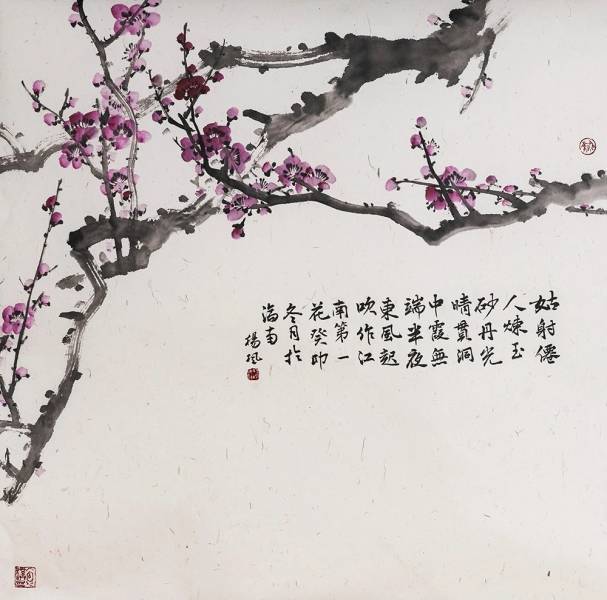 姑射僊
人煉玉
砂丹光
晴貫洞
中霞無
端半夜
東風起
吹作江
南第一
花癸卯
冬月於
南
楊